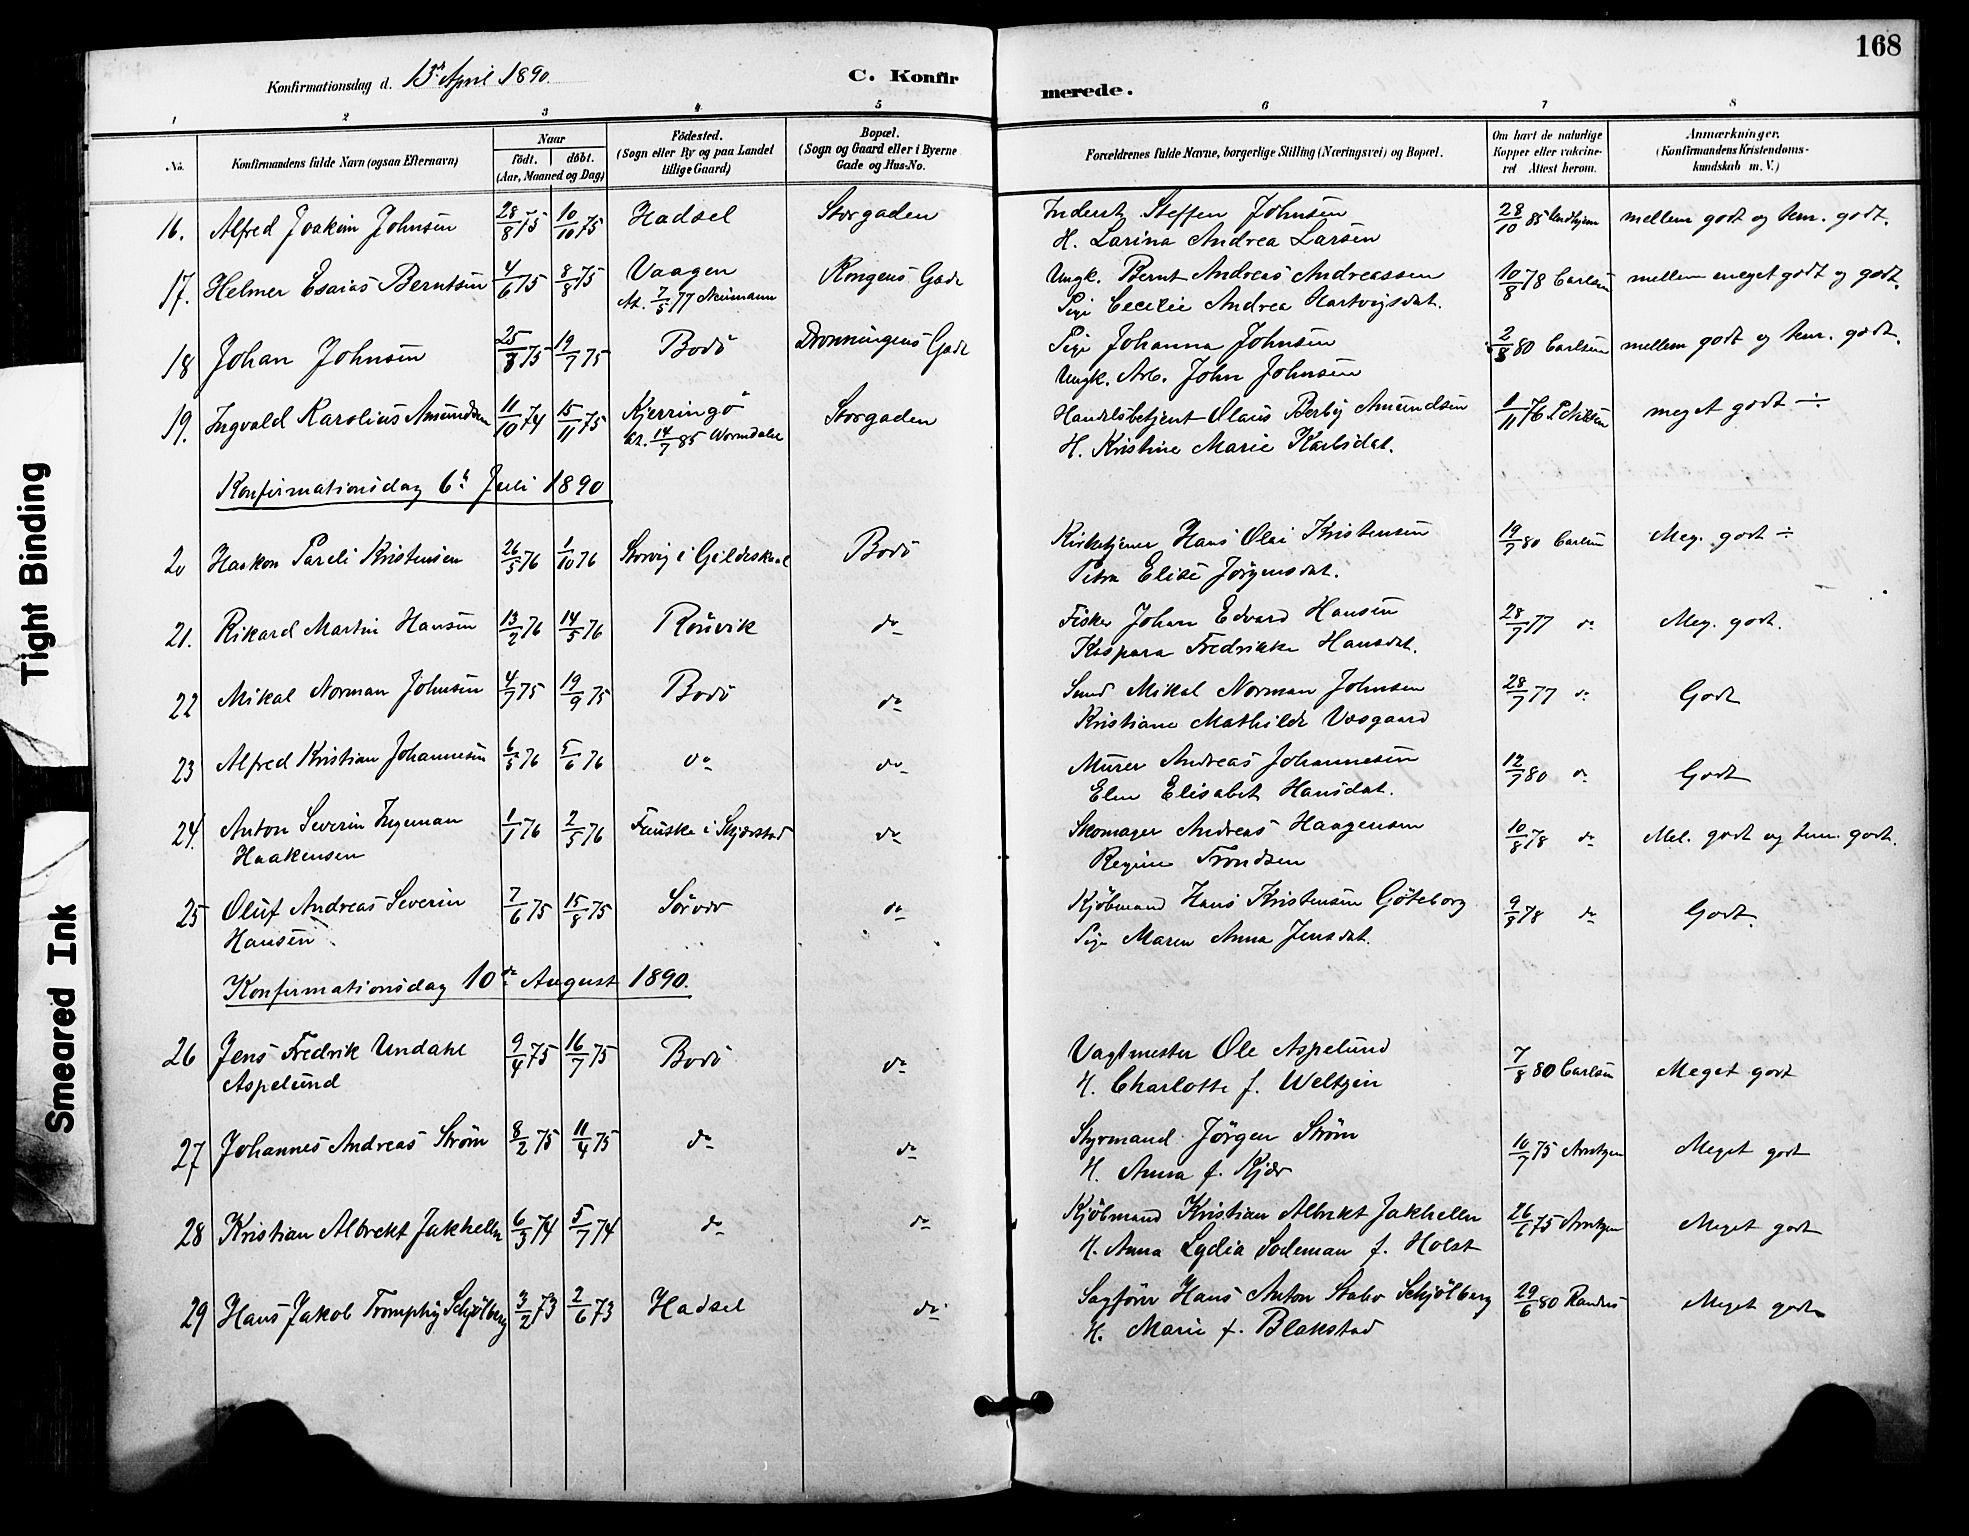 168
Konfirmationsdag d. 13de April 1890.
C. Konfir merede.
1 2 3 4 5 6 7 8
No.
Konfirmandens fulde Navn (ogsaa Efternavn)
Naar
födt. döbt.
(Aar, Maaned og Dag)
Födested.
(Sogn eller By og paa Landet
tillige Gaard)
Bopæl.
(Sogn og Gaard eller i Byerne
Gade og Hus-No.
Forældrenes fulde Navne, borgerlige Stilling (Næringsvei) og Bopæl.
Om havt de naturlige
Kopper eller vakcine-
ret Attest herom.
Anmærkninger.
(Konfirmandens Kristendoms-
kundskab m. V.)
16. Alfred Joakim Johnsen 28/8 75 10/10 75 Hadsel Storgaden Steffen Johnsen 28/10 85 mellem godt og tem. godt.
H. Larina Andrea Larsen
17. Helmer Esaias Berntsen 4/6 75 8/8 75 Vaagen Kongens Gade Ungk. Bernt Andreas Andreassen 10/8 78 Carlsen mellem meget godt og godt.
At. 7/5 77 Neumann Pige Cecelie Andrea Hartvigsdat.
18 Johan Johnsen 25/3 75 19/7 75 Bodö Dronningens Gade Pige Johanna Johnsen 2/8 80 Carlsen mellem godt og tem. godt.
Ungk. Arb. John Johnsen
19. Ingvald Karolius Amundsen 11/10 74 15/11 75 Kjerringö Storgaden Handelsbetjent Olaus Berby Amundsen 1/11 76 meget godt ÷
14/7 85 Wormdahl H. Kristine Marie Karlsdat.
Konfirmationsdag 6te Juli 1890
20 Haakon Pareli Kristensen 26/5 76 1/10 76 Storvig i Gildeskaal Bodö Kirketjener Hans Olai Kristensen 19/7 80 Carlsen Meg. godt ÷
Petra Elise Jörgensdat.
21. Rikard Martin Hansen 13/2 76 14/5 76 Rönvik do Fisker Johan Edvard Hansen 28/7 77 do Meg. godt.
Kaspara Fredrikke Hansdat.
22 Mikal Norman Johnsen 4/7 75 19/9 75 Bodö do Smed Mikal Norman Johnsen 28/7 77 do Godt
Kristiane Mathilde Vosgaard
23 Alfred Kristian Johannesen 6/5 76 5/6 76 do do Murer Andreas Johannesen 12/7 80 do Godt
Elen Elisabet Hansdat.
24. Anton Severin Ingeman 1/1 76 2/5 76 Fauske i Skjerstad do Skomager Andreas Haagensen 10/8 78 do Mel. godt og tem. godt.
Haakensen Regine Trondsen
25 Oluf Andreas Severin 7/6 75 15/8 75 do Kjöbmand Hans Kristensen Göteborg 9/9 78 do Godt.
Hansen Pige Maren Anna Jensdat.
Konfirmationsdag 10de August 1890.
26 Jens Fredrik Undahl 9/4 75 16/7 75 Bodö do Vagtmester Ole Aspelund 7/8 80 Carlsen Meget godt
Aspelund H. Charlotte f. Weltzin
27 Johannes Andreas Ström 8/2 75 11/4 75 do do Styrmand Jörgen Ström 10/7 75 Arntzen Meget godt
H. Anna f. Kjær
28 Kristian Albrekt Jakhelln 6/3 74 5/7 74 do do Kjöbmand Kristian Albrekt Jakhelln 26/6 75 Arntzen Meget godt
H. Anna Lydia Sodeman f. Holst
29 Hans Jakob Tromphy Schjölberg 3/2 73 2/6 73 Hadsel do Sagförer Hans Anton Stabo Schjölberg 29/6 80 Randers Meget godt
H. Marie f. Blakstad
Tight Binding
Smeared Ink